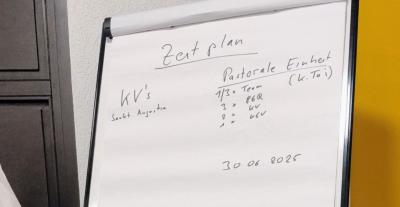 Zeitplan
KV's
Sankt Augustin
Pastorale Einheit
(k. Tai)
1/3 x Team
3 x PGR
2 x KV
1 x KGV
30 06 2025